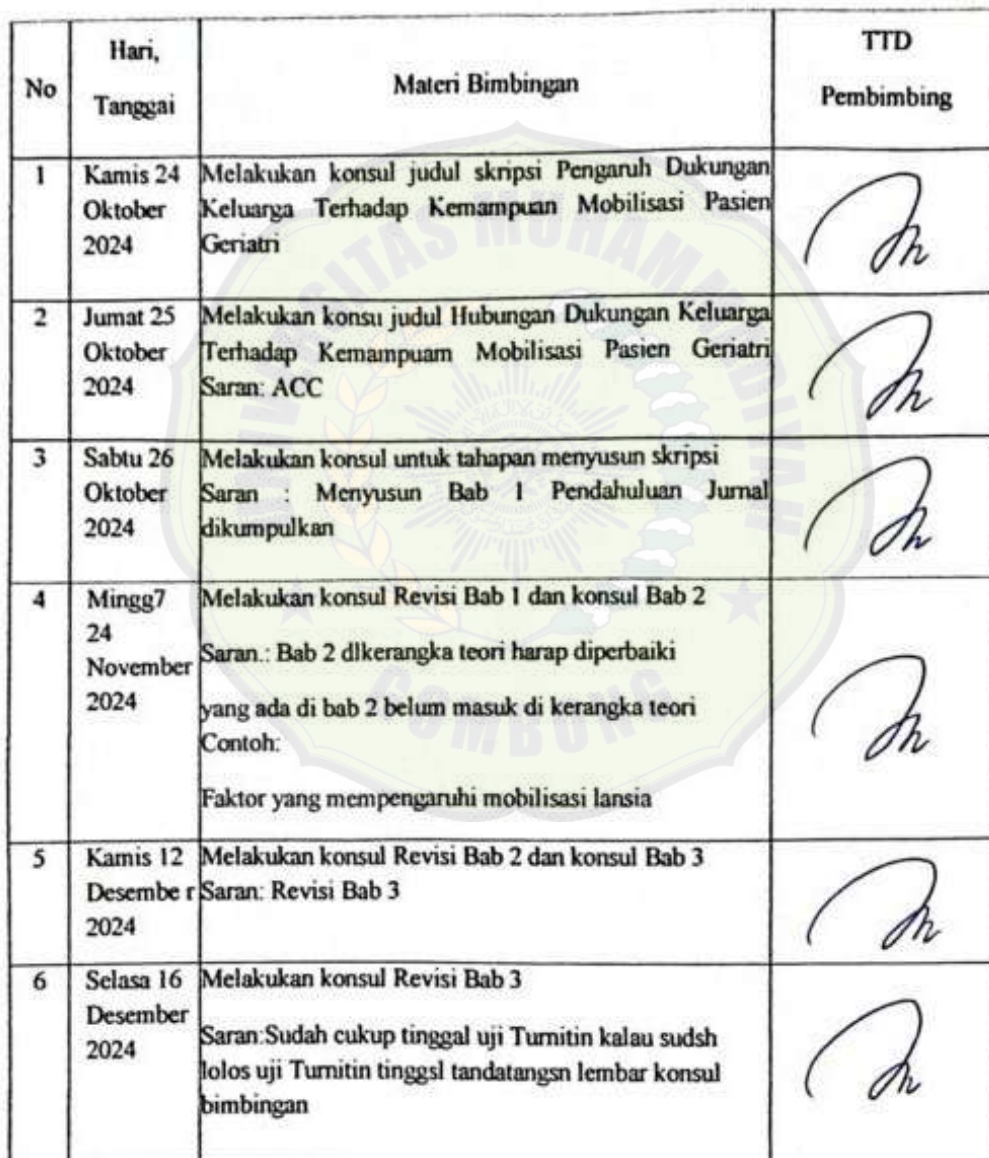 No
Hari,
Tanggai
Materi Bimbingan
TTD
Pembimbing
1
Kamis 24
Oktober
2024
Melakukan konsul judul skripsi Pengaruh Dukungan
Keluarga Terhadap Kemampuan Mobilisasi Pasien
Geriatri
2
Jumat 25
Oktober
2024
Melakukan konsu judul Hubungan Dukungan Keluarga
Terhadap Kemampuam Mobilisasi Pasien Geriatri
Saran: ACC
3
Sabtu 26
Oktober
2024
Melakukan konsul untuk tahapan menyusun skripsi
Saran : Menyusun Bab 1 Pendahuluan Jurnal
dikumpulkan
4
Mingg7
24
November
2024
Melakukan konsul Revisi Bab 1 dan konsul Bab 2
Saran.: Bab 2 dlkerangka teori harap diperbaiki
yang ada di bab 2 belum masuk di kerangka teori
Contoh:
Faktor yang mempengaruhi mobilisasi lansia
5
Kamis 12
Desembe r
2024
Melakukan konsul Revisi Bab 2 dan konsul Bab 3
Saran: Revisi Bab 3
6
Selasa 16
Desember
2024
Melakukan konsul Revisi Bab 3
Saran:Sudah cukup tinggal uji Turnitin kalau sudsh
lolos uji Turnitin tinggsl tandatangsn lembar konsul
bimbingan
UNIVERSITAS MUHAMMADIYAH
GOMBONG